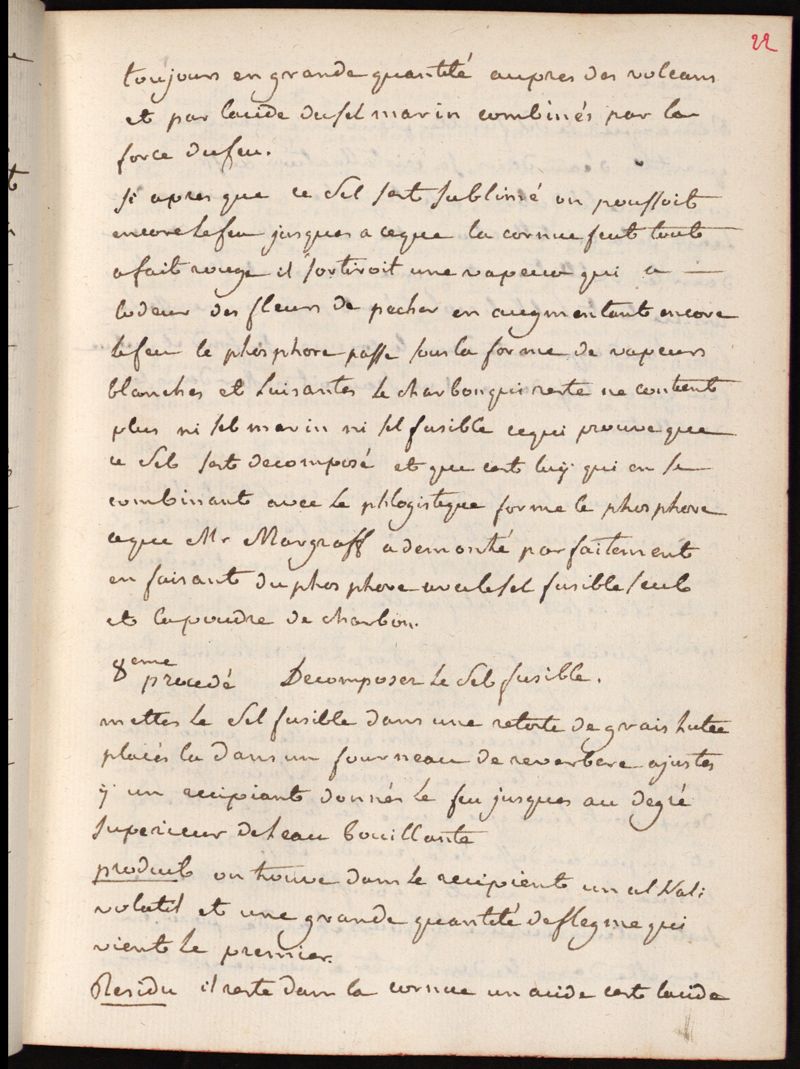 22
toujours en grande quantité aupres des volcans
et par lacide du sel marin combinés par la
force du feu.
si apres que ce Sel sest sublimé on poussoit
encore le feu jusques a ceque la cornue feut tout
a fait rouge il sortiroit une vapeur qui a
lodeur des fleurs de pecher en augmentant encore
le feu le phosphore passe sous la forme de vapeurs
blanches et luisantes le charbon qui reste ne contient
plus ni sel marin ni sel fusible cequi prouve que
ce Sel sest decomposé et que cest luy qui en se
combinant avec le phlogistique forme le phosphore
ceque Mr Margraff a demontré parfaitement
en faisant du phosphore avec le sel fusible seul
et la poudre de charbon.
8eme
procedé Decomposer le Sel fusible.
mettes le Sel fusible dans une retorte de grais lutée
placés la dans un fourneau de reverbere ajustes
y un recipiant donnés le feu jusques au degré
superieur de leau bouillante
produit on trouve dans le recipient un alkali
volatil et une grande quantité deflegme qui
vient le premier.
Residu il reste dans la cornue un acide cest lacide